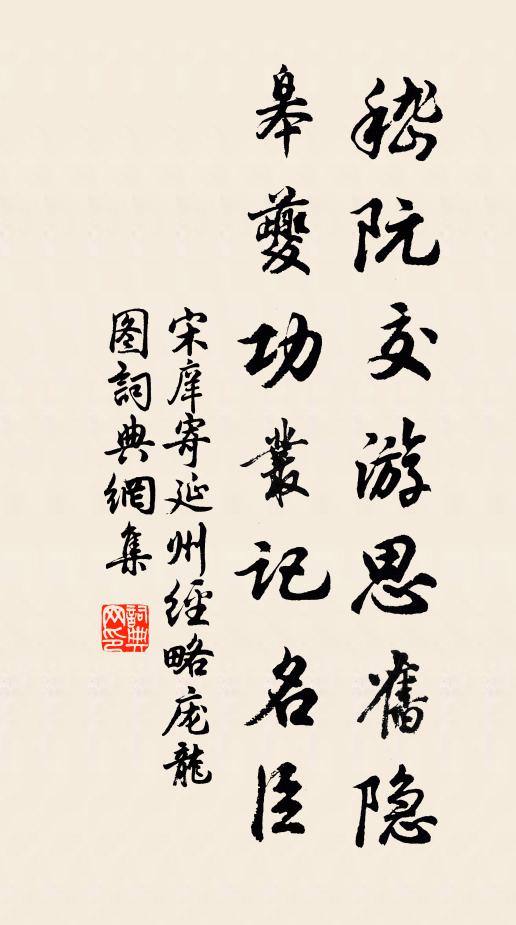 嵇阮交游思舊隐
皋夔功叢記名臣
宋庠寄延州經略庞龍
图詞典網集
詞典網印